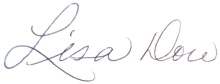 Lisa Dow